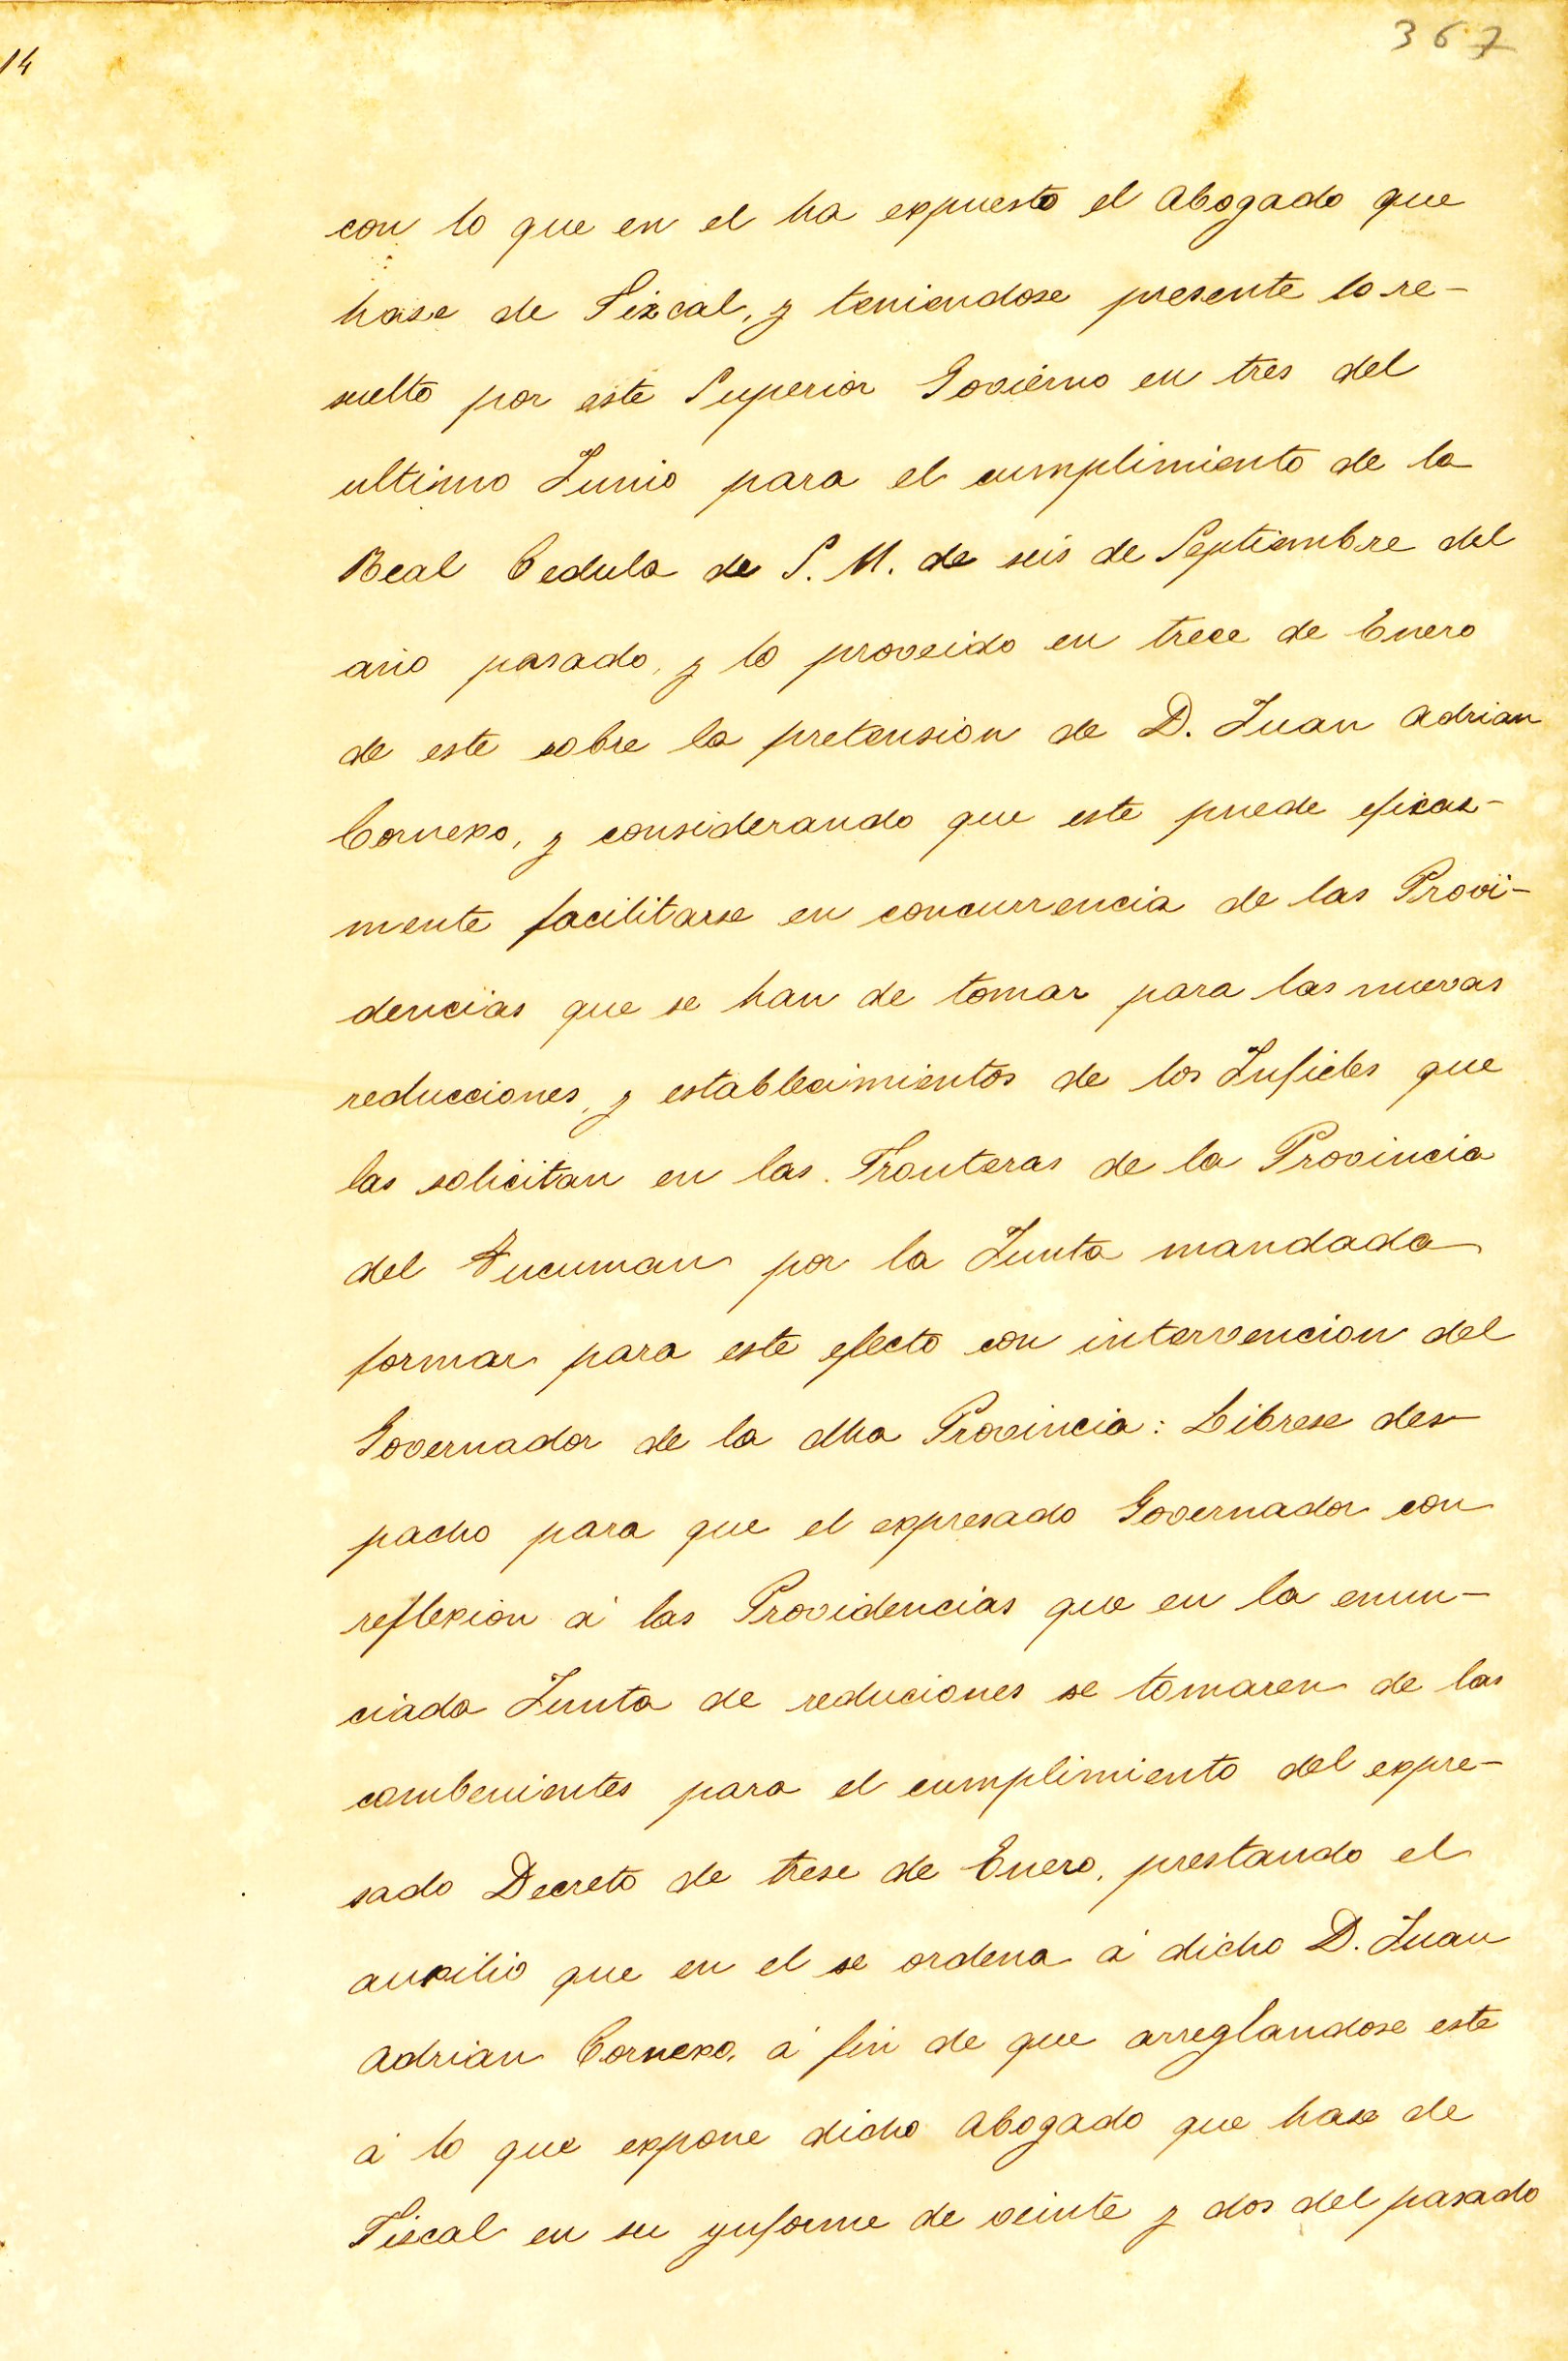 367
14
con lo que en el ha expuesto el Abogado que
hase de Fiscal, y teniendose presente lo re-
suelto por este Superior Govierno en tres del
ultimo Junio para el cumplimiento de la
Real Cedula de S. M. de seis de Septiembre del
año pasado, y lo proveido en trece de Enero
de este sobre la pretension de D. Juan Adrian
Cornexo, y considerando que este puede eficaz-
mente facilitarse en concurrencia de las Provi-
dencias que se han de tomar para las nuevas
reducciones, y establecimientos de los Infieles que
las solicitan en las Fronteras de la Provincia
del Tucuman por la Junta mandada
formar para este efecto con intervencion del
Governador de la dha Provincia: Librese des-
pacho para que el expresado Governador con
reflexion á las Providencias que en la enun-
ciada Junta de reduciones se tomaren de las
combenientes para el cumplimiento del expre-
sado Decreto de trese de Enero, prestando el
auxilio que en el se ordena á dicho D. Juan
Adrian Cornexo, á fin de que arreglandose este
á lo que expone dicho Abogado que hase de
Fiscal en su ynforme de veinte y dos del pasado